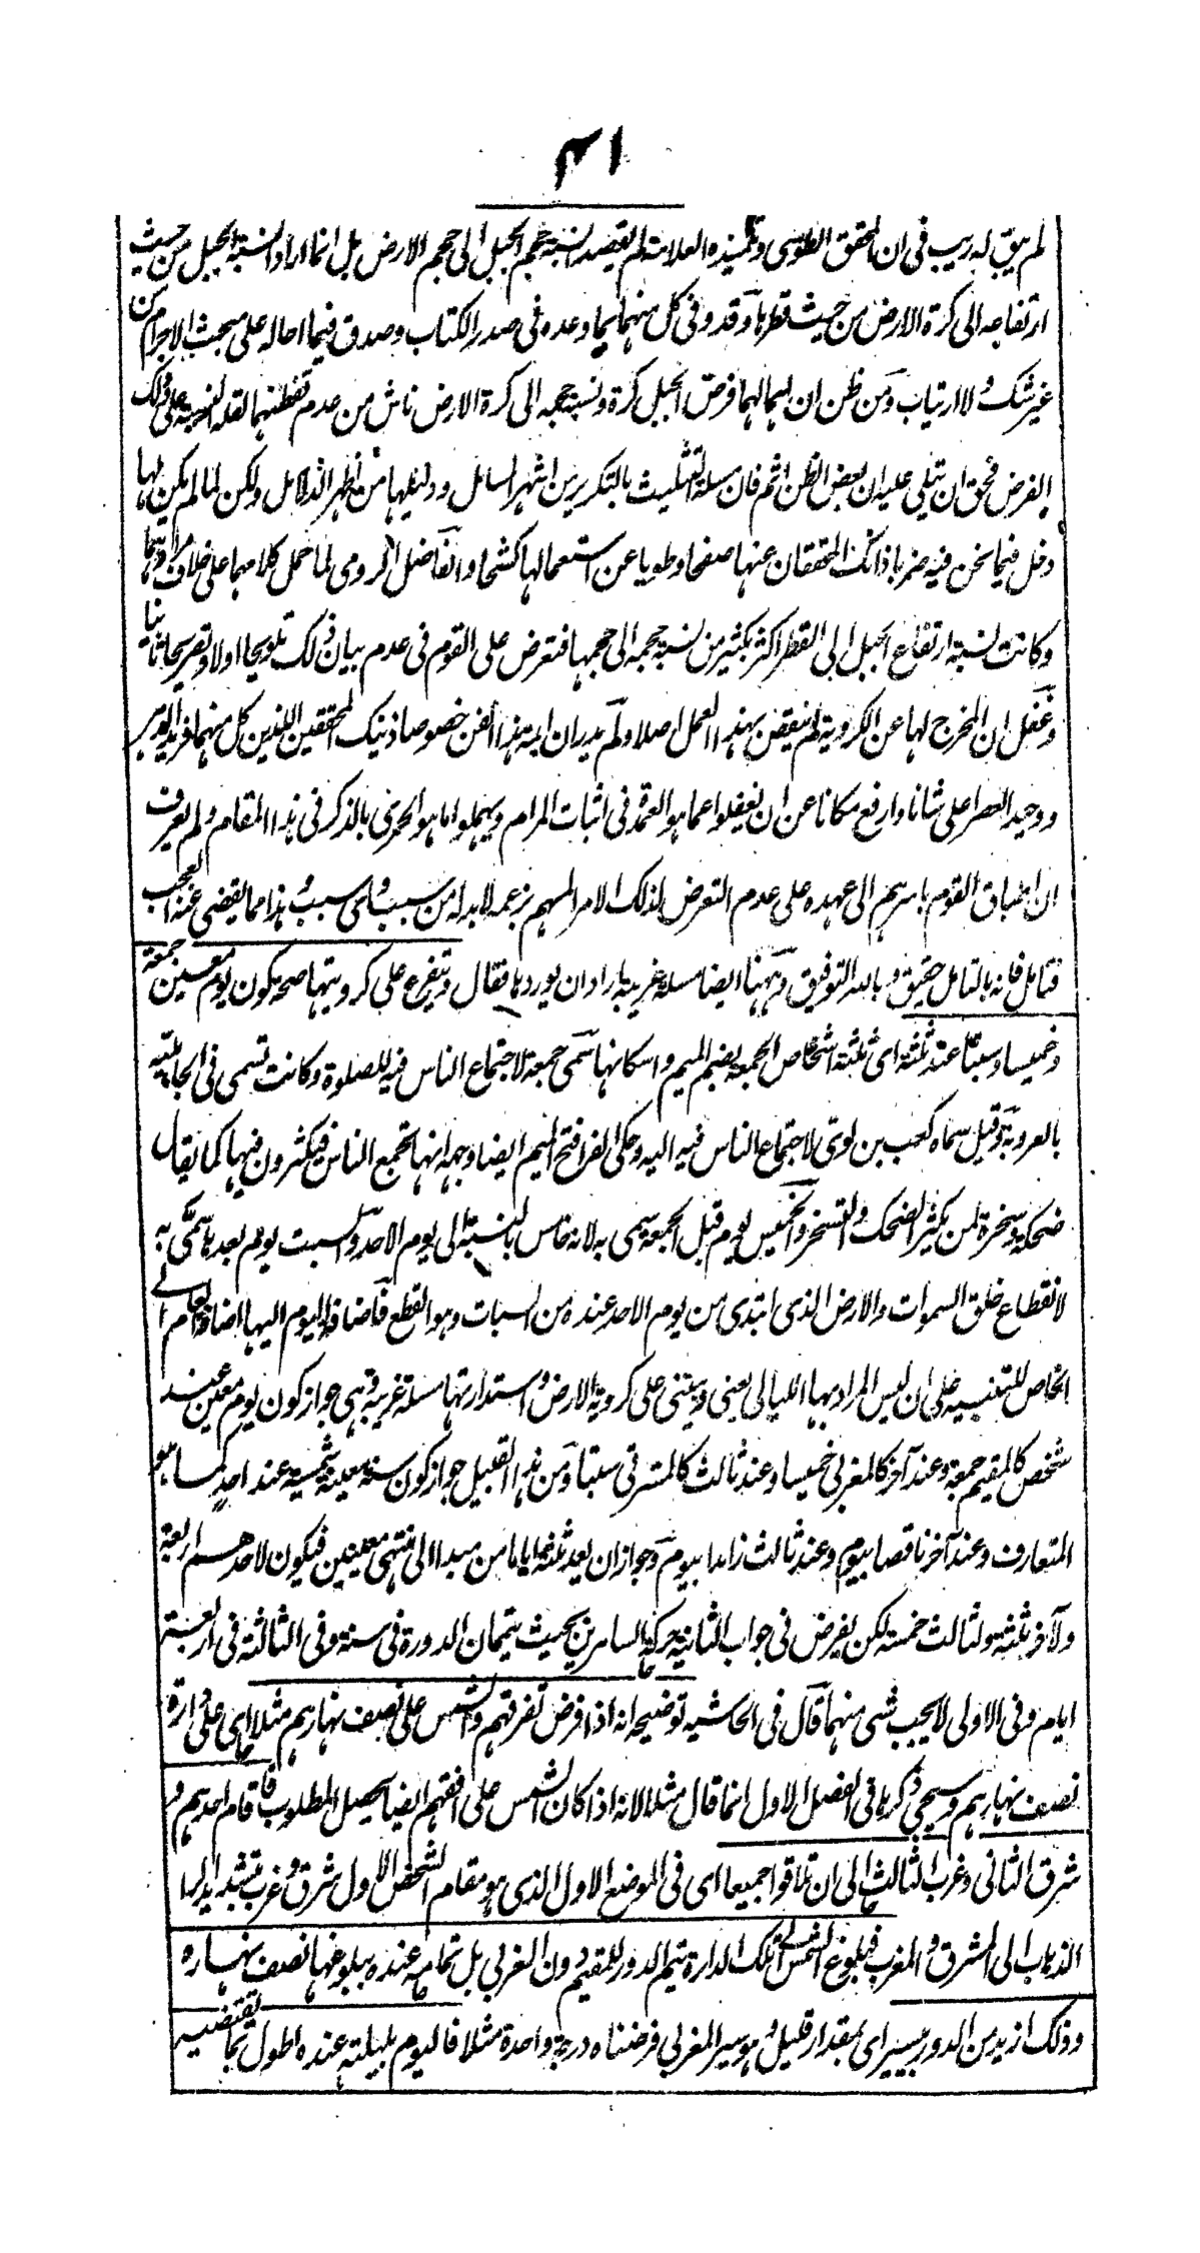 ٤١
لم يبق له ريب في ان المحقق الطوسى وتلميذه العلامة لم يقصد نسبة حجم الجبل الى حجم الارض بل انما اراد نسبة الجبل من حيث
ارتفاعه الى كرة الارض من حيث قطرها وقد وفى كل منهما بما وعده فى صدر الكتاب وصدق فيما احاله على مبحث الاجرام من
غير شك ولا ارتياب ومن ظن ان ليها لهما فرض الجبل كرة ونسبة حجمه الى كرة الارض ناش من عدم تفطنهما لقلة على ذلك
الفرض فحق ان يتلى عليه ان بعض الظن اثم فان مسئلة التثليث بالتكرير من اشهر المسائل ودليلها من اظهر الدلائل ولكن لما لم يكن لها
دخل فيما نحن فيه ضربا ذانك المحققان عنها صفحا وطويا عن استعمالها كشحا والفاضل الرومى لما حمل كلامهما على خلاف مرادهما
وكانت نسبة ارتفاع الجبل الى القطر اكثر بكثير من نسبة حجمه الى حجمها فتعرض على القوم فى عدم بيان ذلك تلويحا اولا وتصريحا ثانيا
وغفل ان المخرج لها عن الكروية لم ينقص بهذا العمل اصلا ولم يدر ان ايمة هذا الفن خصوصا ذينك المحققين اللذين كل منهما فريد الدهر
ووحيد العصر اعلى شانا وارفع مكانا عن ان يغفلوا عما هو العمدة فى اثبات المرام ويهملوا ما هو الحرى بالذكر فى هذا المقام ولم يعرف
ان اطباق القوم باسرهم الى عهده على عدم التعرض لذلك الامر المهم بزعمه لا بد له من سبب واى سبب وهذا مما يقضى عنه العجب
فتامل فانه بالتامل حقيق وبالله التوفيق وههنا ايضا مسئلة غريبة اراد ان يوردها فقال ويتفرع على كرويتها صحة كون يوم معين جمعة
وخميسا وسبتا عند ثلثة اى ثلثة اشخاص الجمعة بضم الميم واسكانها سمى جمعة لاجتماع الناس فيه للصلوة وكانت تسمى فى الجاهلية
بالعروبة وقيل سماه كعب بن لوى لاجتماع الناس فيه اليه وحكى الفرا فتح الميم ايضا وجه انها تجمع الناس فيكثرون فيها كما يقال
ضحكة وسخرة لمن يكثر الضحك والتسخر والخميس يوم قبل الجمعة سمى به لانه خامس بالنسبة الى يوم الاحد والسبت يوم بعدها سمى به
لانقطاع خلق السموات والارض الذى ابتدى من يوم الاحد عنده من السبات وهو القطع فاضافة اليوم اليها اضافة العام الى
الخاص للتنبيه على ان ليس المراد بها الليالى يعنى ويبتنى على كروية الارض واستدارتها مسئلة غريبة وهى جواز كون يوم معين عند
شخص كالمقيم جمعة وعند آخر كالمغربى خميسا وعند ثالث كالمشرقى سبتا ومن هذا القبيل جواز كون سنة معينة شمسية عند احد كما هو
المتعارف وعند آخر ناقصا بيوم وعند ثالث زايدا بيوم وجواز ان يعد ثلثة اياما من مبدا الى منتهى معينين فيكون لاحدهم اربعة
ولآخر ثلثة ولثالث خمسة لكن يفرض فى جواب الثانية حركة السايرين بحيث يتمان الدورة فى سنة وفى الثالثة فى اربعة
ايام وفى الاولى لا يجب شى منهما قال فى الحاشية توضيحه انه اذا فرض تفرقهم والشمس على نصف نهارهم مثلا اى على دائرة
نصف نهارهم وسيجى ذكرها فى الفصل الاول انما قال مثلا لانه اذا كان الشمس على افقهم ايضا يحصل المطلوب فاقام احدهم و
شرق الثانى وغرب الثالث الى ان تلاقوا جميعا اى فى الموضع الاول الذى هو مقام الشخص الاول شرق وغرب بتشديد الرا
الذهاب الى المشرق والمغرب فبلوغ الشمس الى تلك الدائرة يتم الدور للمقيم دون الغربى بل تمامه عنده ببلوغها نصف نهاره
وذلك ازيد من الدور بيسير اى بمقدار قليل وهو سير المغربى فرضناه درجة واحدة مثلا فاليوم بليلته عنده اطول بما تقتضيه